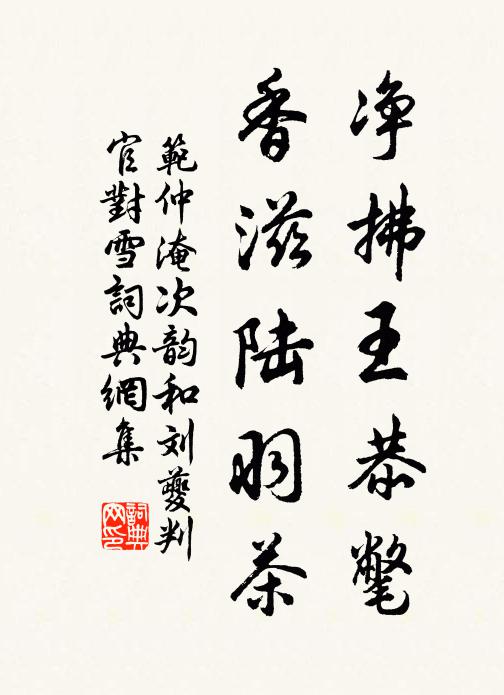 净拂王恭氅
香滋陆羽茶
範仲淹次韵和刘夔判
官對雪詞典網集
詞典
网印